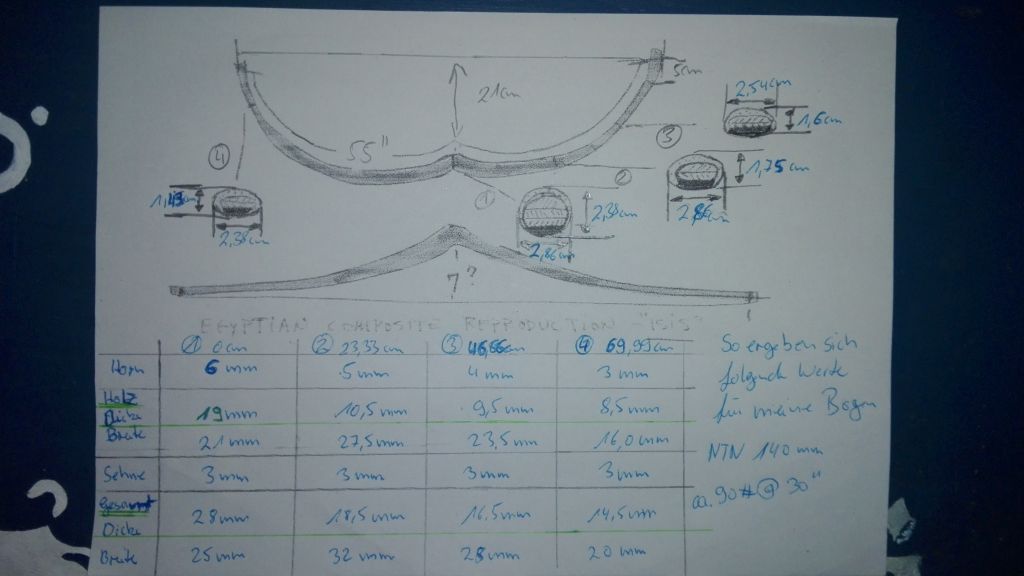 21cm
5cm
2,54cm
1,6cm
55"
③
④
②
1,75cm
①
2,38cm
2,86cm
2,38cm
2,86cm
7"?
EGYPTIAN COMPOSITE REPRODUCTION - "ISIS"
① 0cm ② 23,33cm ③ 46,66cm ④ 69,99cm
Horn 6mm 5mm 4mm 3mm
Holz
Dicke 19mm 10,5mm 9,5mm 8,5mm
Breite 21mm 27,5mm 23,5mm 16,0mm
Sehne 3mm 3mm 3mm 3mm
gesamt
Dicke 28mm 18,5mm 16,5mm 14,5mm
Breite 25mm 32mm 28mm 20mm
So ergeben sich
folgende Werte
für meine Bogen
NTN 140mm
ca. 90#@ 30"